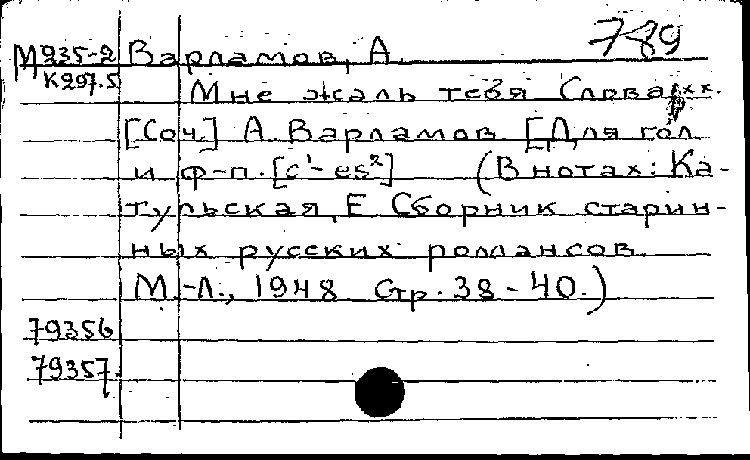 789
М235-2 Варламов, А.
К297.5 Мне жаль тебя Слова хх.
[Соч.] А. Варламов. [Для гол.
и ф-п. [c¹-es²] (В нотах: Ка-
тульская, Е. Сборник старин-
ных русских романсов.
М.-Л., 1948 Стр. 38-40.)
79356
79357